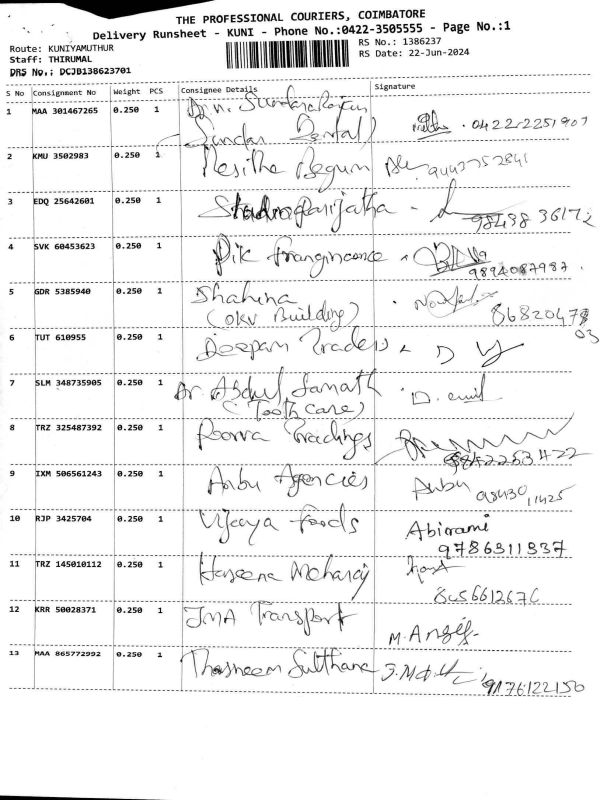 THE PROFESSIONAL COURIERS, COIMBATORE
Delivery Runsheet - KUNI - Phone No.:0422-3505555 - Page No.:1
Route: KUNIYAMUTHUR
RS No.: 1386237
Staff: THIRUMAL
RS Date: 22-Jun-2024
DRS No.: DCJB138623701
S No Consignment No Weight PCS Consignee Details Signature
1 MAA 301467265 0.250 1 Dr. N. Sundararajan
(Sundar Dental) 0422-2251907
2 KMU 3502983 0.250 1 Resitha Begum 9443752841
3 EDQ 25642601 0.250 1
4 SVK 60453623 0.250 1 Pik 9894087987
5 GDR 5385940 0.250 1 Shahina
(OKV Building) 86820478
03
6 TUT 610955 0.250 1 Deepam Traders
7 SLM 348735905 0.250 1 Dr. Abdul Samath
(Tooth Care)
8 TRZ 325487392 0.250 1 Poorva Tradings
9842253422
9 IXM 506561243 0.250 1 Anbu Agencies Anbu 98430 11425
10 RJP 3425704 0.250 1 Vijaya Foods Abirami
9786311337
11 TRZ 145010112 0.250 1 Haseena Meharaj
12 KRR 50028371 0.250 1 JMA Transport
13 MAA 865772992 0.250 1 Thasneem Sulthana 9176122150